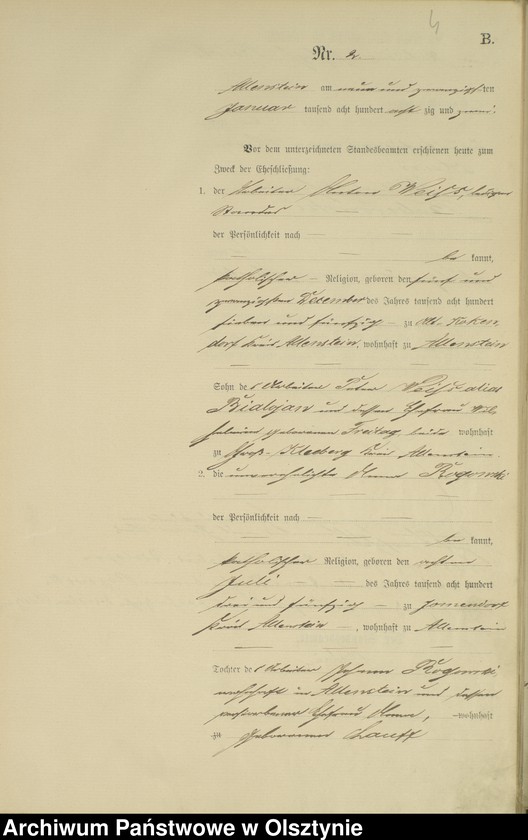 4
B.
Nr. 2
Allenstein am neun und zwanzigsten
Januar tausend acht hundert acht zig und zwei.
Vor dem unterzeichneten Standesbeamten erschienen heute zum
Zweck der Eheschließung:
1. der Arbeiter Weiß, lediger
Standes
der Persönlichkeit nach
be kannt,
katholischer Religion, geboren den fünf und
zwanzigsten Dezember des Jahres tausend acht hundert
sieben und fünfzig zu Alt-Koken
dorf Kreis Allenstein, wohnhaft zu Allenstein
Sohn des Arbeiter Peter Weiß alias
Bialojan und dessen Ehefrau Wil
helmine geborenen Freitag beide wohnhaft
zu Groß-Kleeberg Kreis Allenstein.
2. die unverehelichte Anna Rogowski
der Persönlichkeit nach
be kannt,
katholischer Religion, geboren den achten
Juli des Jahres tausend acht hundert
drei und fünfzig zu Jomendorf
Kreis Allenstein, wohnhaft zu Allenstein
Tochter des Arbeiter Johann Rogowski
wohnhaft in Allenstein und dessen
verstorbener Ehefrau Anna, wohnhaft
zu geborenen
Archiwum Państwowe w Olsztynie